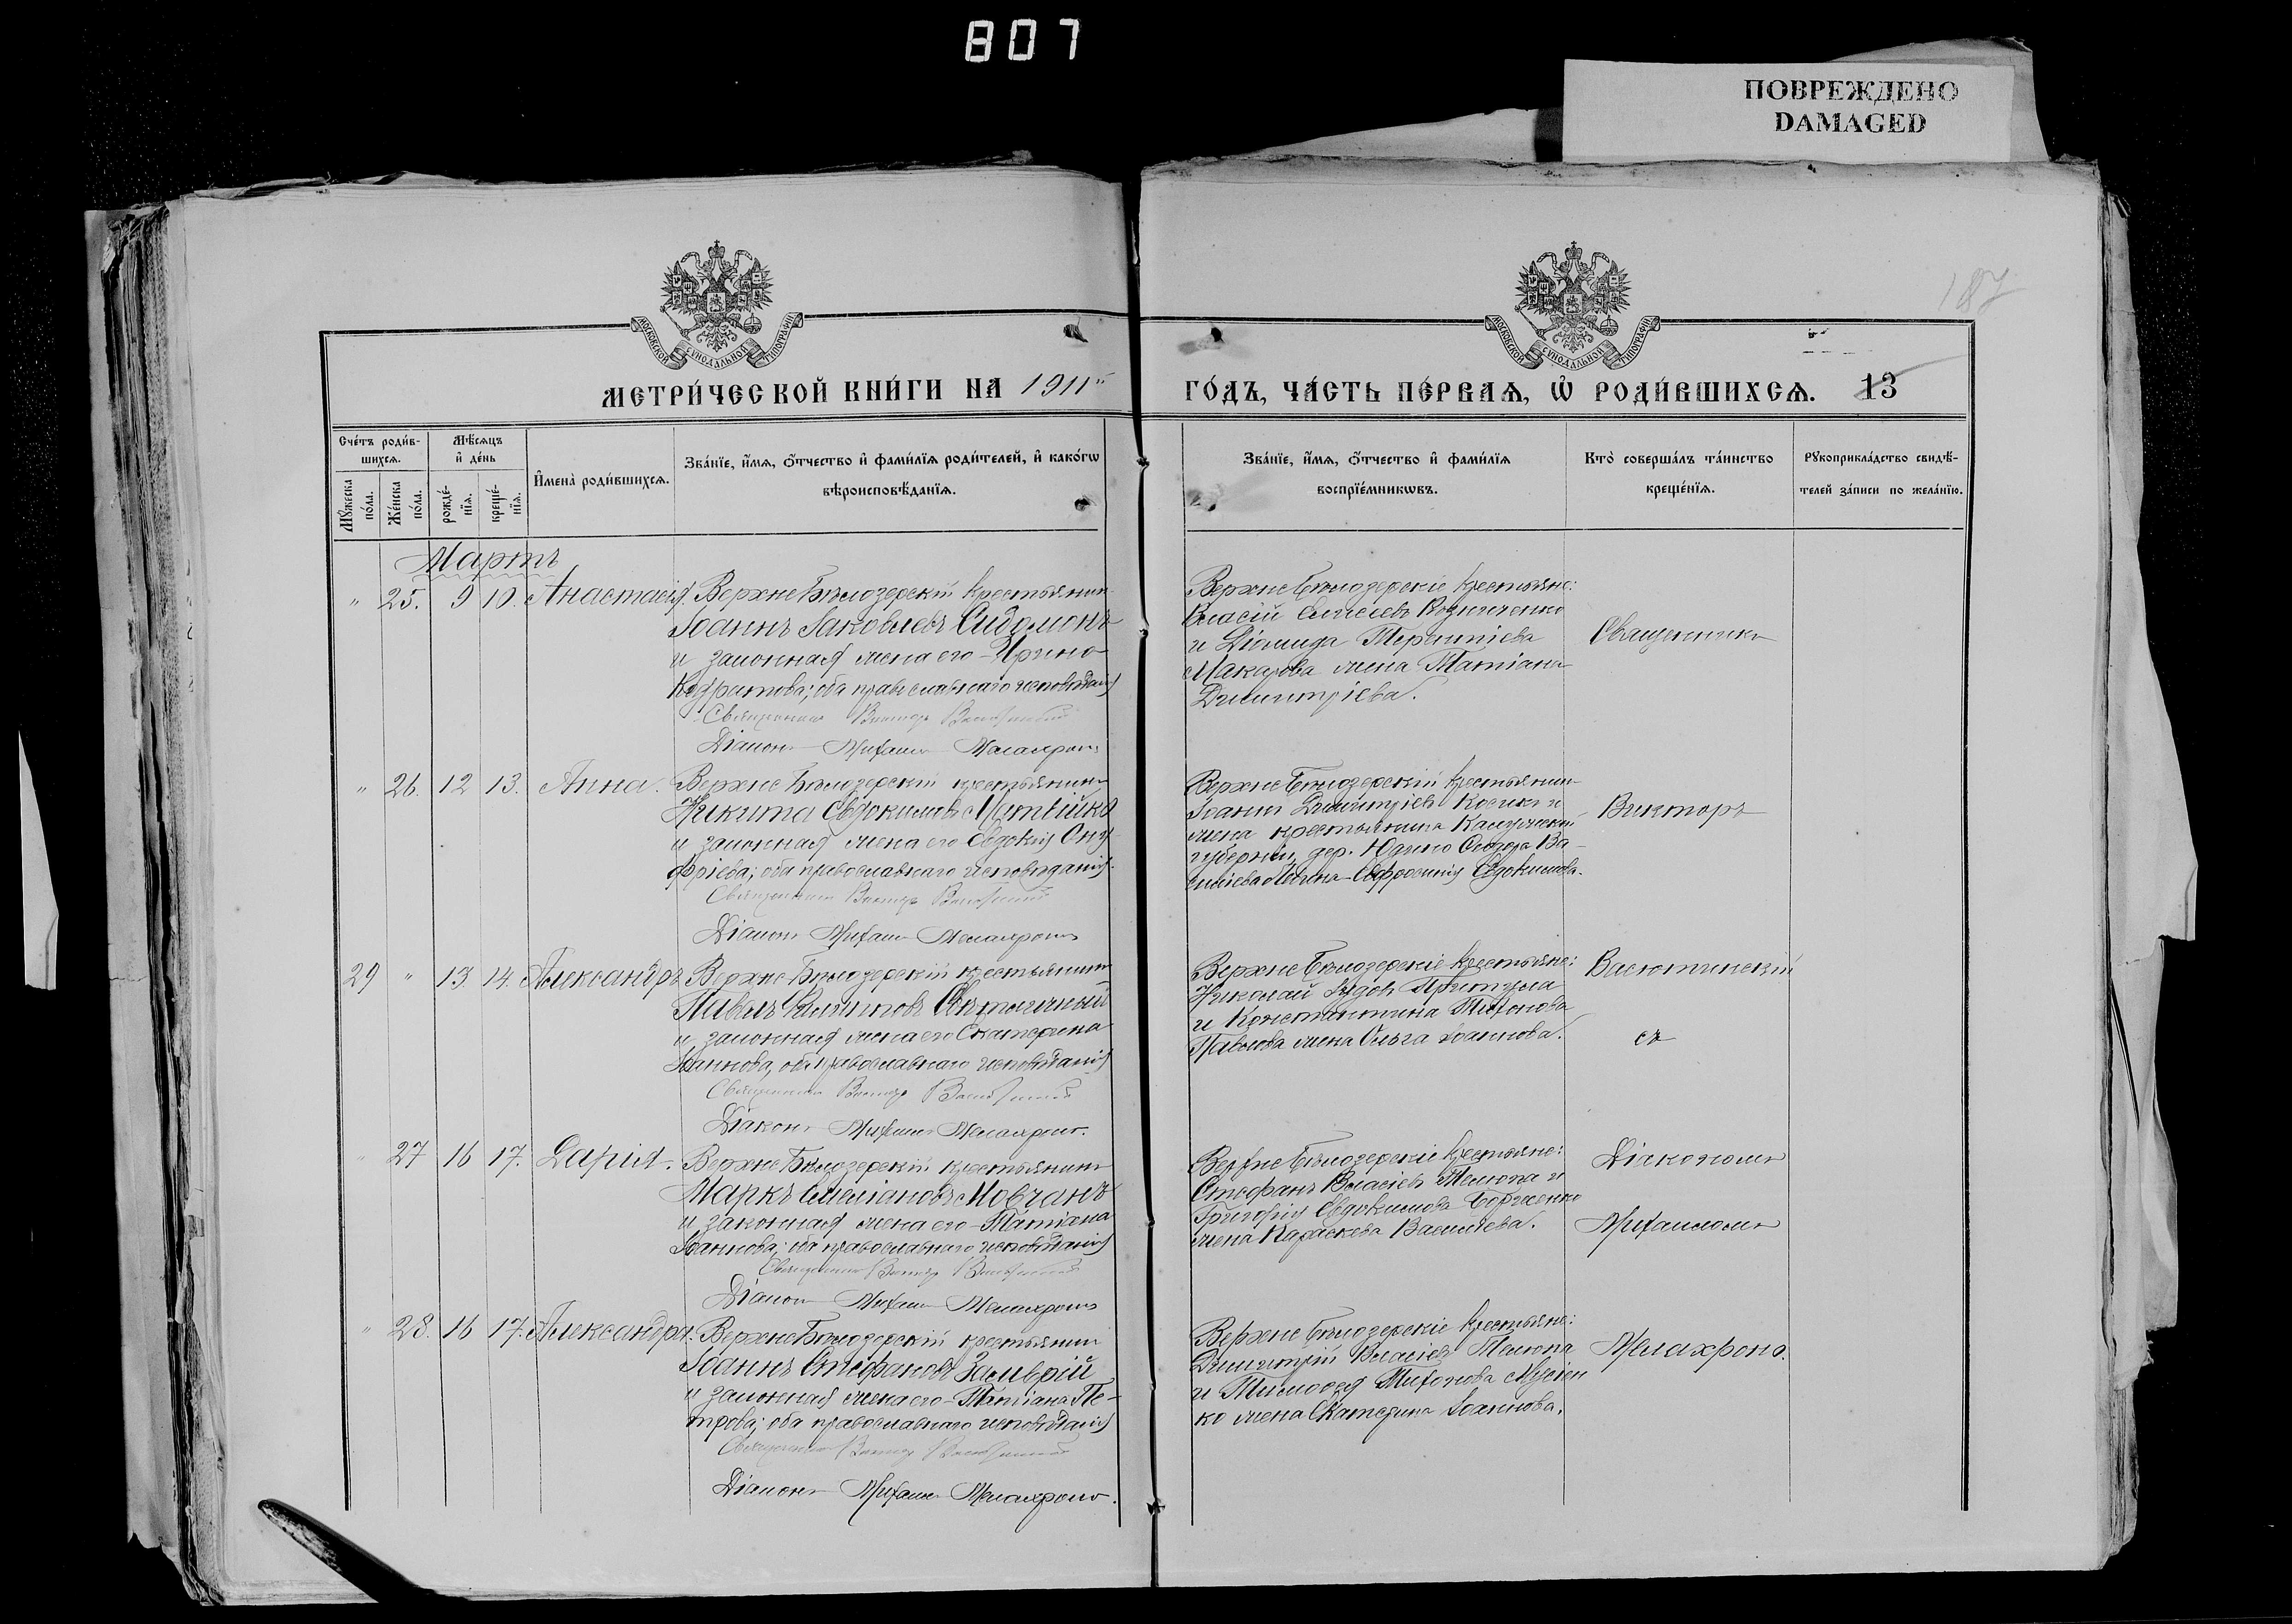 807
ПОВРЕЖДЕНО
DAMAGED
187
МОСКОВСКОЙ СѴНОДАЛЬНОЙ ТИПОГРАФІИ
МОСКОВСКОЙ СѴНОДАЛЬНОЙ ТИПОГРАФІИ
МЕТРИ́ЧЕСКОЙ КНИ́ГИ НА 1911
ГО́ДЪ, ЧА́СТЬ ПЕ́РВАЯ, Ѡ РОДИ́ВШИХСЯ. 13
Сче́тъ роди́в-
шихся.
Мѣ́сяцъ
и҆ де́нь
Мꙋ́жеска по́ла.
Же́нска по́ла.
рожде́-
нїя.
креще́-
нїя.
И҆мена̀ роди́вшихся.
Зва́нїе, и҆́мя, ѻ҆́тчество и҆ фами́лїя роди́телей, и҆ како́гѡ
вѣроисповѣ́данїя.
Зва́нїе, и҆́мя, ѻ҆́тчество и҆ фами́лїя
воспрїе́мникѡвъ.
Кто̀ соверша́лъ та́инство
креще́нїя.
Рꙋкоприкла́дство свидѣ́-
телей за́писи по жела́нїю.
Мартъ
" 25. 9 10. Анастасія. Верхне Бѣлозерскій крестьянин
Іоаннъ Іаковлевъ Сидомонъ
и законная жена его - Ирина
православнаго исповѣданія
Священникъ Викторъ Васютинскій
Діаконъ Михаилъ Мелахроно
Верхне Бѣлозерскіе крестьяне:
Власій
и Діомида Терентіева
Макарова жена Татіана
Димитріева.
Священникъ
" 26. 12 13. Анна. Верхне Бѣлозерскій крестьянинъ
Никита Евдокимовъ Матвійко
и законная жена его Евдокія Ону-
фріева; оба православнаго исповѣданія.
Священникъ Викторъ Васютинскій
Діаконъ Михаилъ Мелахроно
Верхне Бѣлозерскій крестьянин
Іоаннъ Димитріевъ и
жена крестьянина Калужской
губерніи, дер. Ва-
силіева жена - Евфросинія Евдокимова.
Викторъ
29 " 13. 14. Александръ Верхне Бѣлозерскій крестьянинъ
Павелъ Свѣтличный
и законная жена его Екатерина
Іоаннова, оба православнаго исповѣданія
Священникъ Викторъ Васютинскій
Діаконъ Михаилъ Мелахроно.
Верхне Бѣлозерскіе крестьяне:
Николай Притула
и Константина Тихонова
Павлова жена Ольга Іоаннова.
Васютинскій
съ
" 27 16 17. Дарія. Верхне Бѣлозерскій крестьянинъ
Маркъ Емеліановъ Мовчанъ
и законная жена его - Татіана
Іоаннова; оба православнаго исповѣданія
Священникъ Викторъ Васютинскій
Діаконъ Михаилъ Мелахроно
Верхне Бѣлозерскіе крестьяне:
Стефанъ Власіевъ Телюпа и
Григорія Евдокимова
жена Параскева Василіева.
Діакономъ
Михаиломъ
" 28. 16 17. Александра. Верхне Бѣлозерскій крестьянин
Іоаннъ Стефановъ
и законная жена его - Татіана Пе-
трова; оба православнаго исповѣданія
Священникъ Викторъ Васютинскій
Діаконъ Михаилъ Мелахроно.
Верхне Бѣлозерскіе крестьяне:
Димитрій Власіевъ Телюпа
и Тимофея Тихонова
ко жена Екатерина Іоаннова.
Мелахроно.